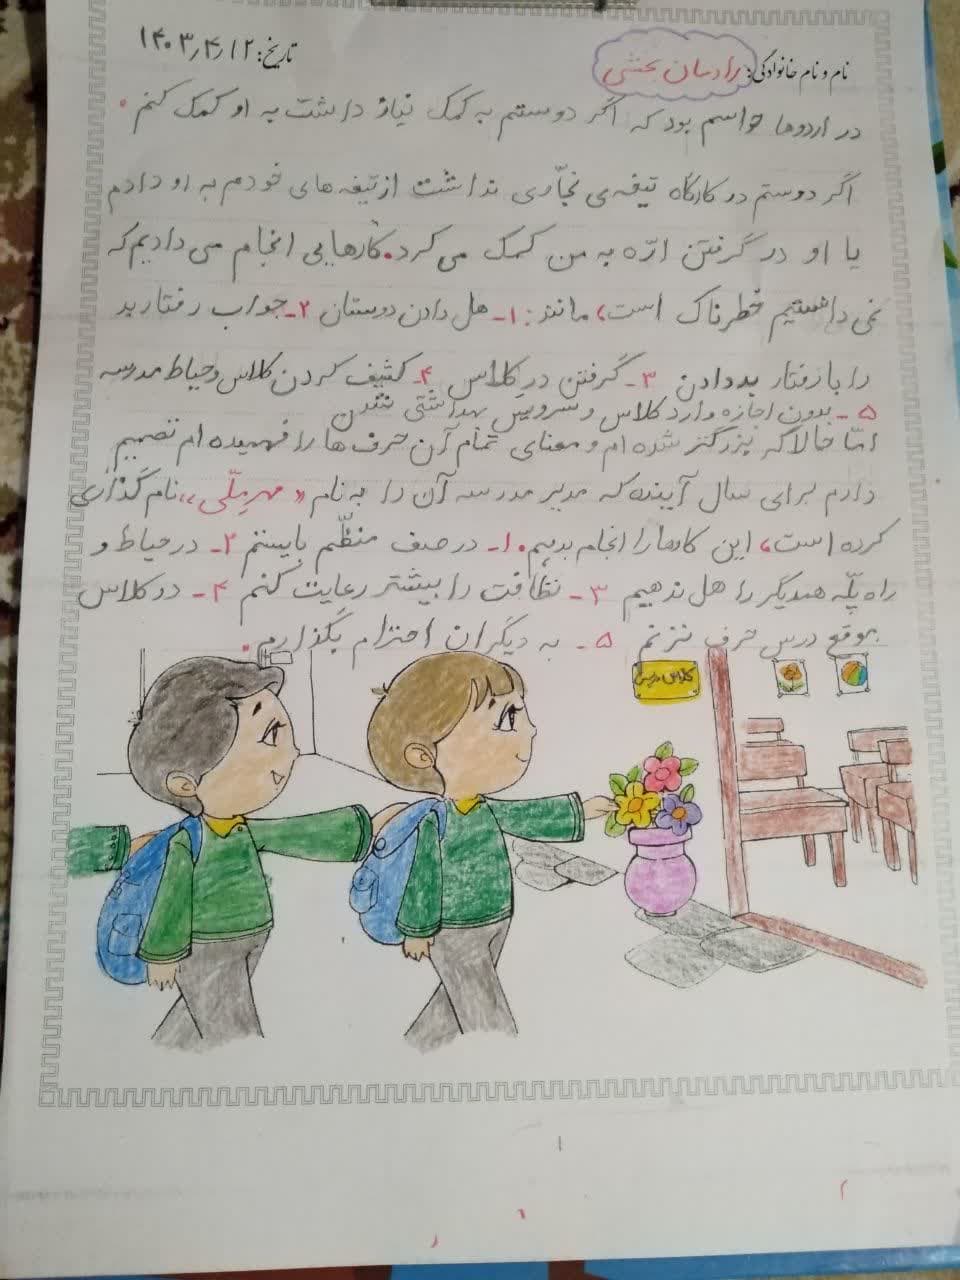 نام و نام خانوادگی: رادمان بخشی
تاریخ: ۱۴۰۳٫۴٫۱۲
در اردوها حواسم بود که اگر دوستم به کمک نیاز داشت به او کمک کنم.
اگر دوستم در کارگاه تیغه‌ی نجّاری نداشت از تیغه های خودم به او دادم
یا او در گرفتن ارّه به من کمک می کرد. کارهایی انجام می دادیم که
نمی دانستیم خطرناک است، مانند: ۱- هل دادن دوستان ۲- جواب رفتار بد
را با رفتار بد دادن ۳- گرفتن در کلاس ۴- کثیف کردن کلاس و حیاط مدرسه
۵- بدون اجازه وارد کلاس و سرویس بهداشتی شدن
امّا حالا که بزرگتر شده ام و معنای تمام آن حرف ها را فهمیده ام تصمیم
دارم برای سال آینده که مدیر مدرسه آن را به نام «مهر ملّی» نام گذاری
کرده است، این کارها را انجام بدیم. ۱- در صف منظّم بایستم ۲- در حیاط و
راه پلّه همدیگر را هل ندهیم ۳- نظافت را بیشتر رعایت کنم ۴- در کلاس
موقع درس حرف نزنم ۵- به دیگران احترام بگذارم.
کلاس درس